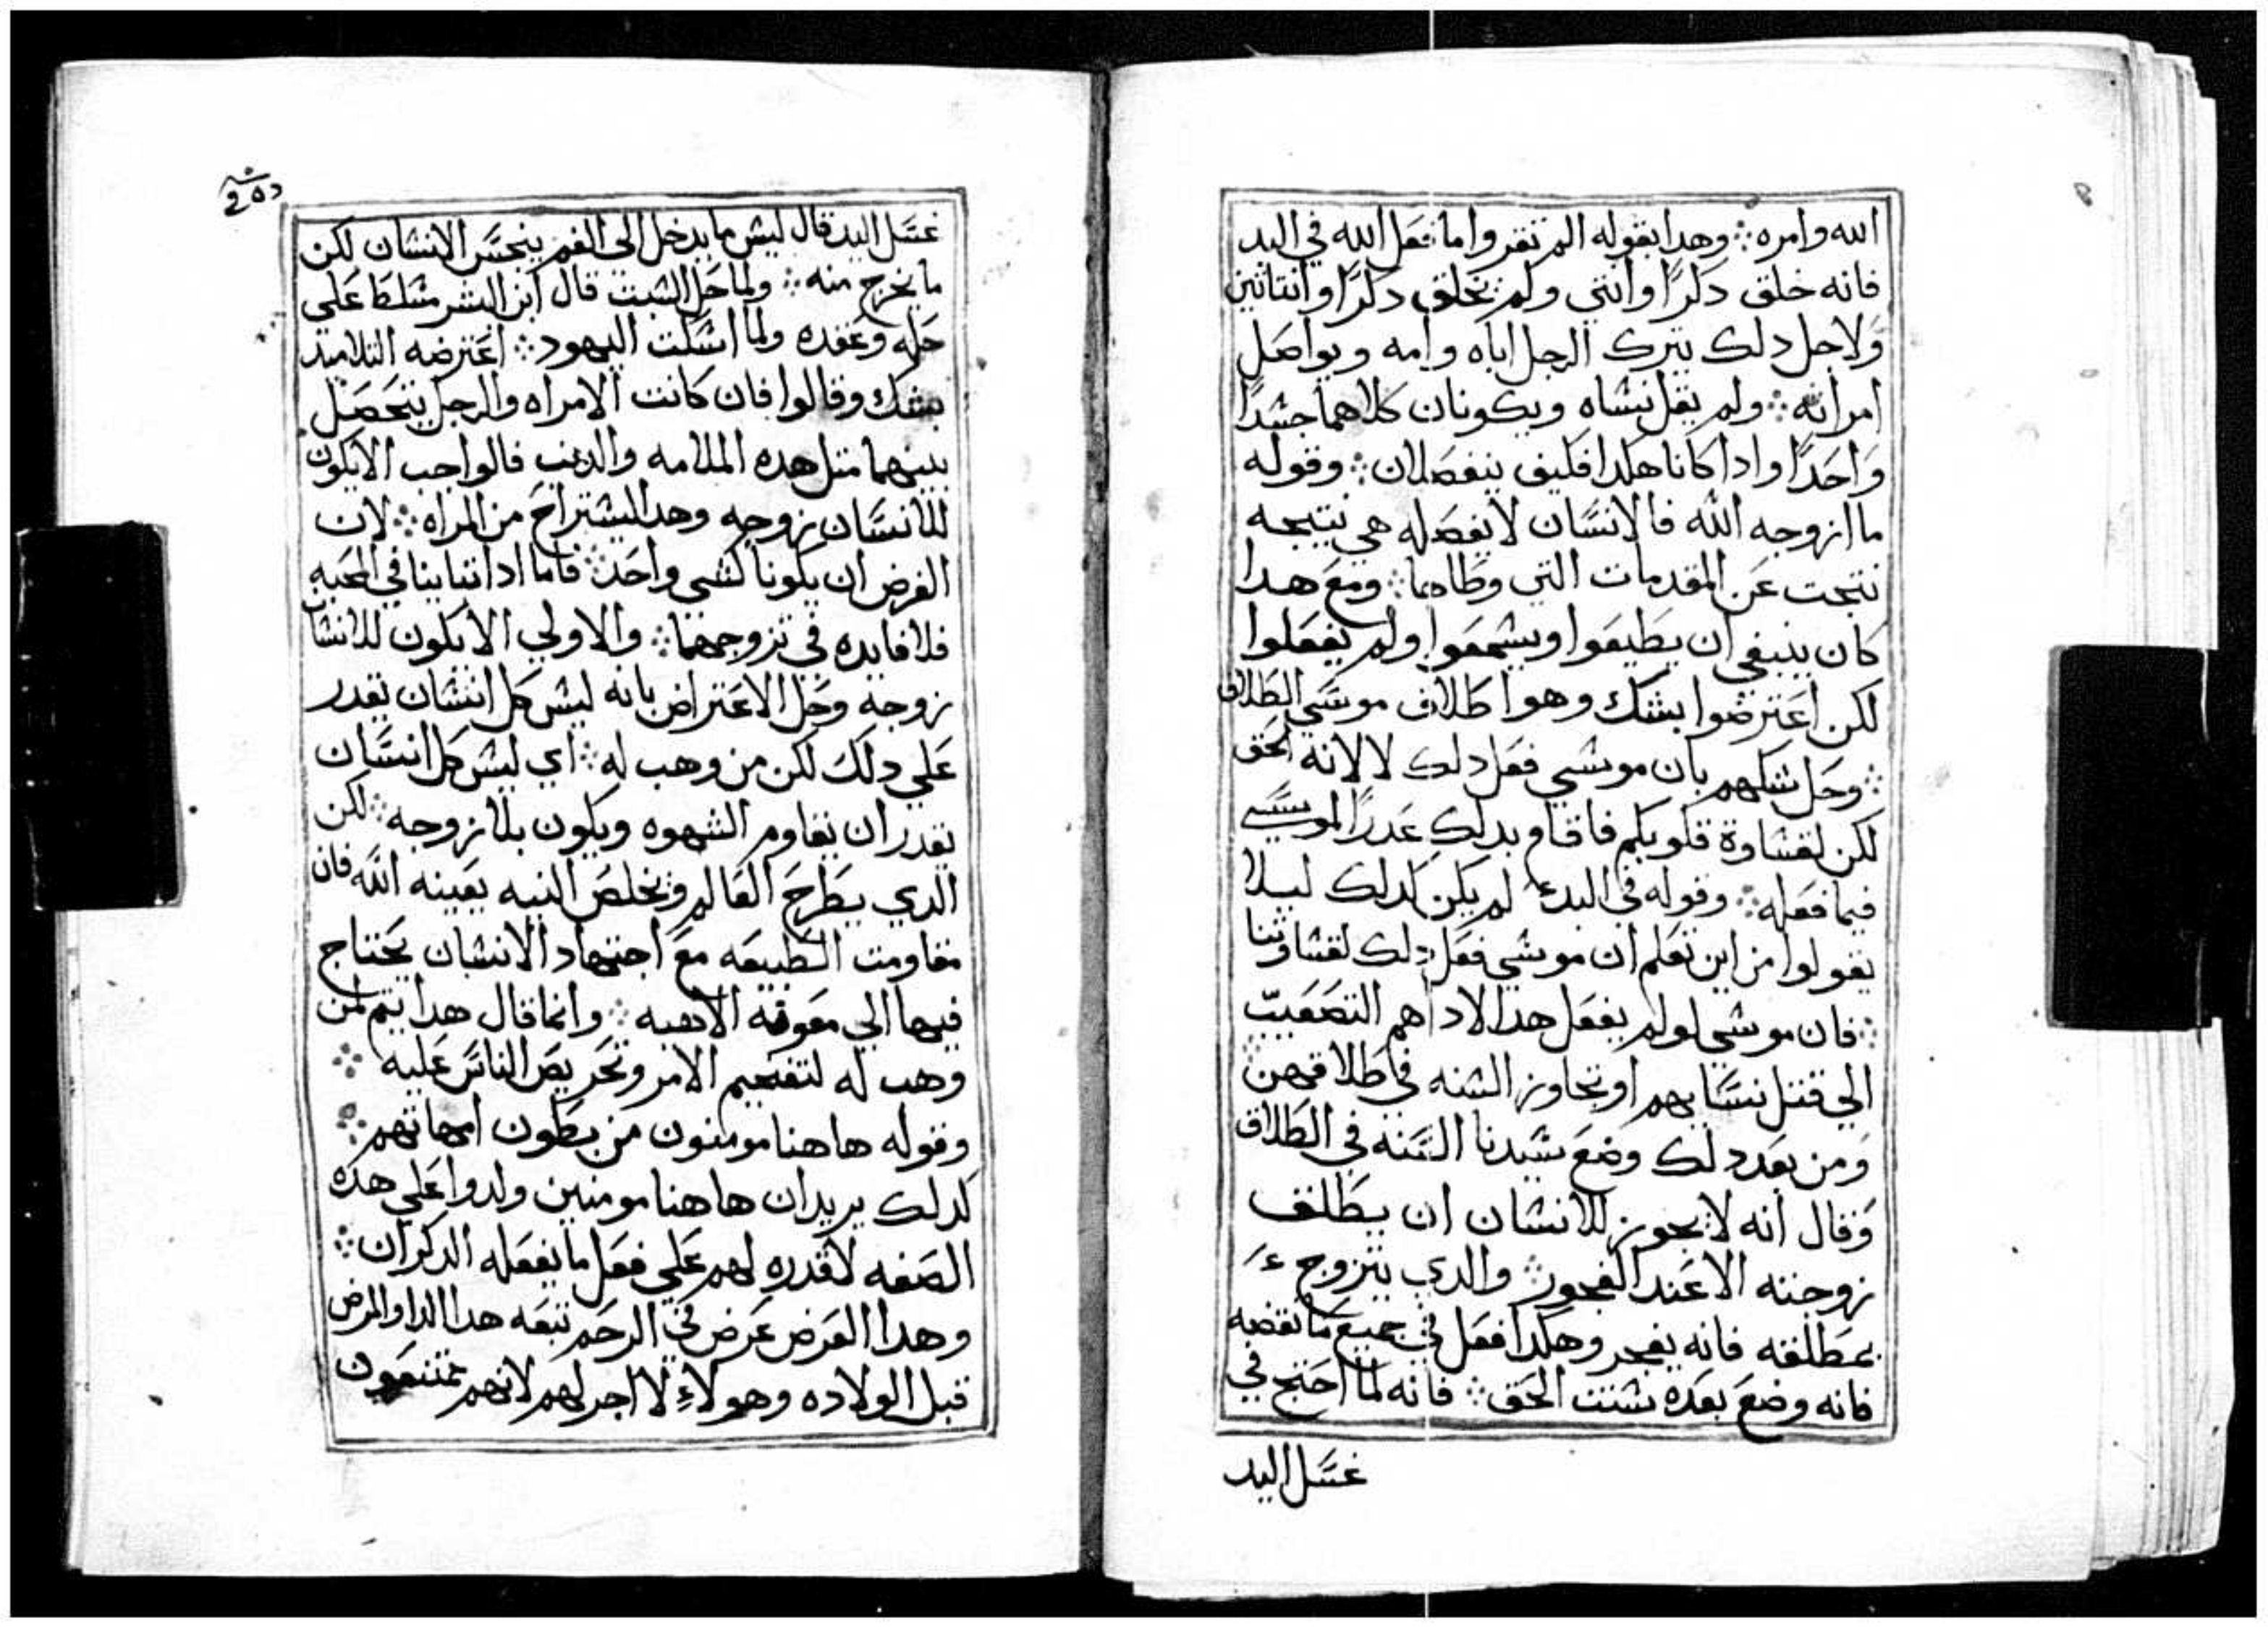 الله وامره ܀ وهدا بقوله الم تقروا ما فعل الله في البد
فانه خلق دكرًا وانتي ولم يخلق دكرًا وانتاتين
ولاجل دلك يترك الرجل اباه وامه ويواصل
امراته ܀ ولم يقل نشاه ويكونان كلاهما جشدًا
واحدًا وادا كانا هكدا فكيف ينفصلان ܀ وقوله
ما ازوجه الله فالانسان لا يفصله هي نتيجه
نتجت عن المقدمات التي وطاها ܀ ومع هدا
كان ينبغي ان يطيعوا ويشمعوا ولم يفعلوا
لكن اعترضوا بشك وهو اطلاق موسي الطلاق
܀ وحل شكهم بان موشي فعل دلك لا لانه الحق
لكن لقشاوة قلوبكم فاقام بدلك عدرًا لموسي
فيما فعله ܀ وقوله في البدء لم يكن كدلك ليلا
يقولوا من اين نعلم ان موشي فعل دلك لقشاوتنا
܀ فان موشي لو لم يفعل هدا لاداهم التصعيب
الي قتل نسايهم او تجاوز الشنه في طلاقهن
ومن بعد دلك وضع شيدنا السنه في الطلاق
وقال انه لا يجوز للانشان ان يطلق
زوجته الا عند الفجور ܀ والدي يتزوج
بمطلقه فانه يفجر وهكدا فعل في جميع ما نقضه
فانه وضع بعده شنت الحق ܀ فانه لما احتج في
غسل اليد
غسل اليد قال ليش ما يدخل الي الفم ينجس الانشان لكن
ما يخرج منه ܀ ولما حل الشبت قال ابن البشر مشلط علي
حله وعقده ولما اشكت اليهود ܀ اعترضه التلاميد
بشك وقالوا فان كانت الامراه والرجل يتحصل
بينهما متل هده الملامه والدنب فالواجب الا يكون
للانسان زوجه وهدا ليشتراح من المراه ܀ لان
الغرض ان يكونا كشي واحد ܀ فاما ادا تباينا في المحبه
فلا فايده في تزوجهما ܀ والاولي الا يكون للانشا
زوجه وحل الاعتراض بانه ليش كل انشان يقدر
علي دلك لكن من وهب له ܀ اي ليش كل انسان
يقدر ان يقاوم الشهوه ويكون بلا زوجه ܀ لكن
الدي يطرح العالم ويخلص النيه يعينه الله فان
مقاومت الطبيعه مع اجتهاد الانشان يحتاج
فيها الي معونه الاهيه ܀ وانما قال هدا يتم لمن
وهب له لتفخيم الامر وتحريص الناس عليه ܀
وقوله هاهنا مومنون من بطون امهاتهم ܀
كدلك يريد ان هاهنا مومنين ولدوا علي هده
الصفه لا قدره لهم علي فعل ما يفعله الدكران ܀
وهدا العرض عرض في الرحم تبعه هدا الدا والمرض
قبل الولاده وهولاء لا اجر لهم لانهم ممتنعون